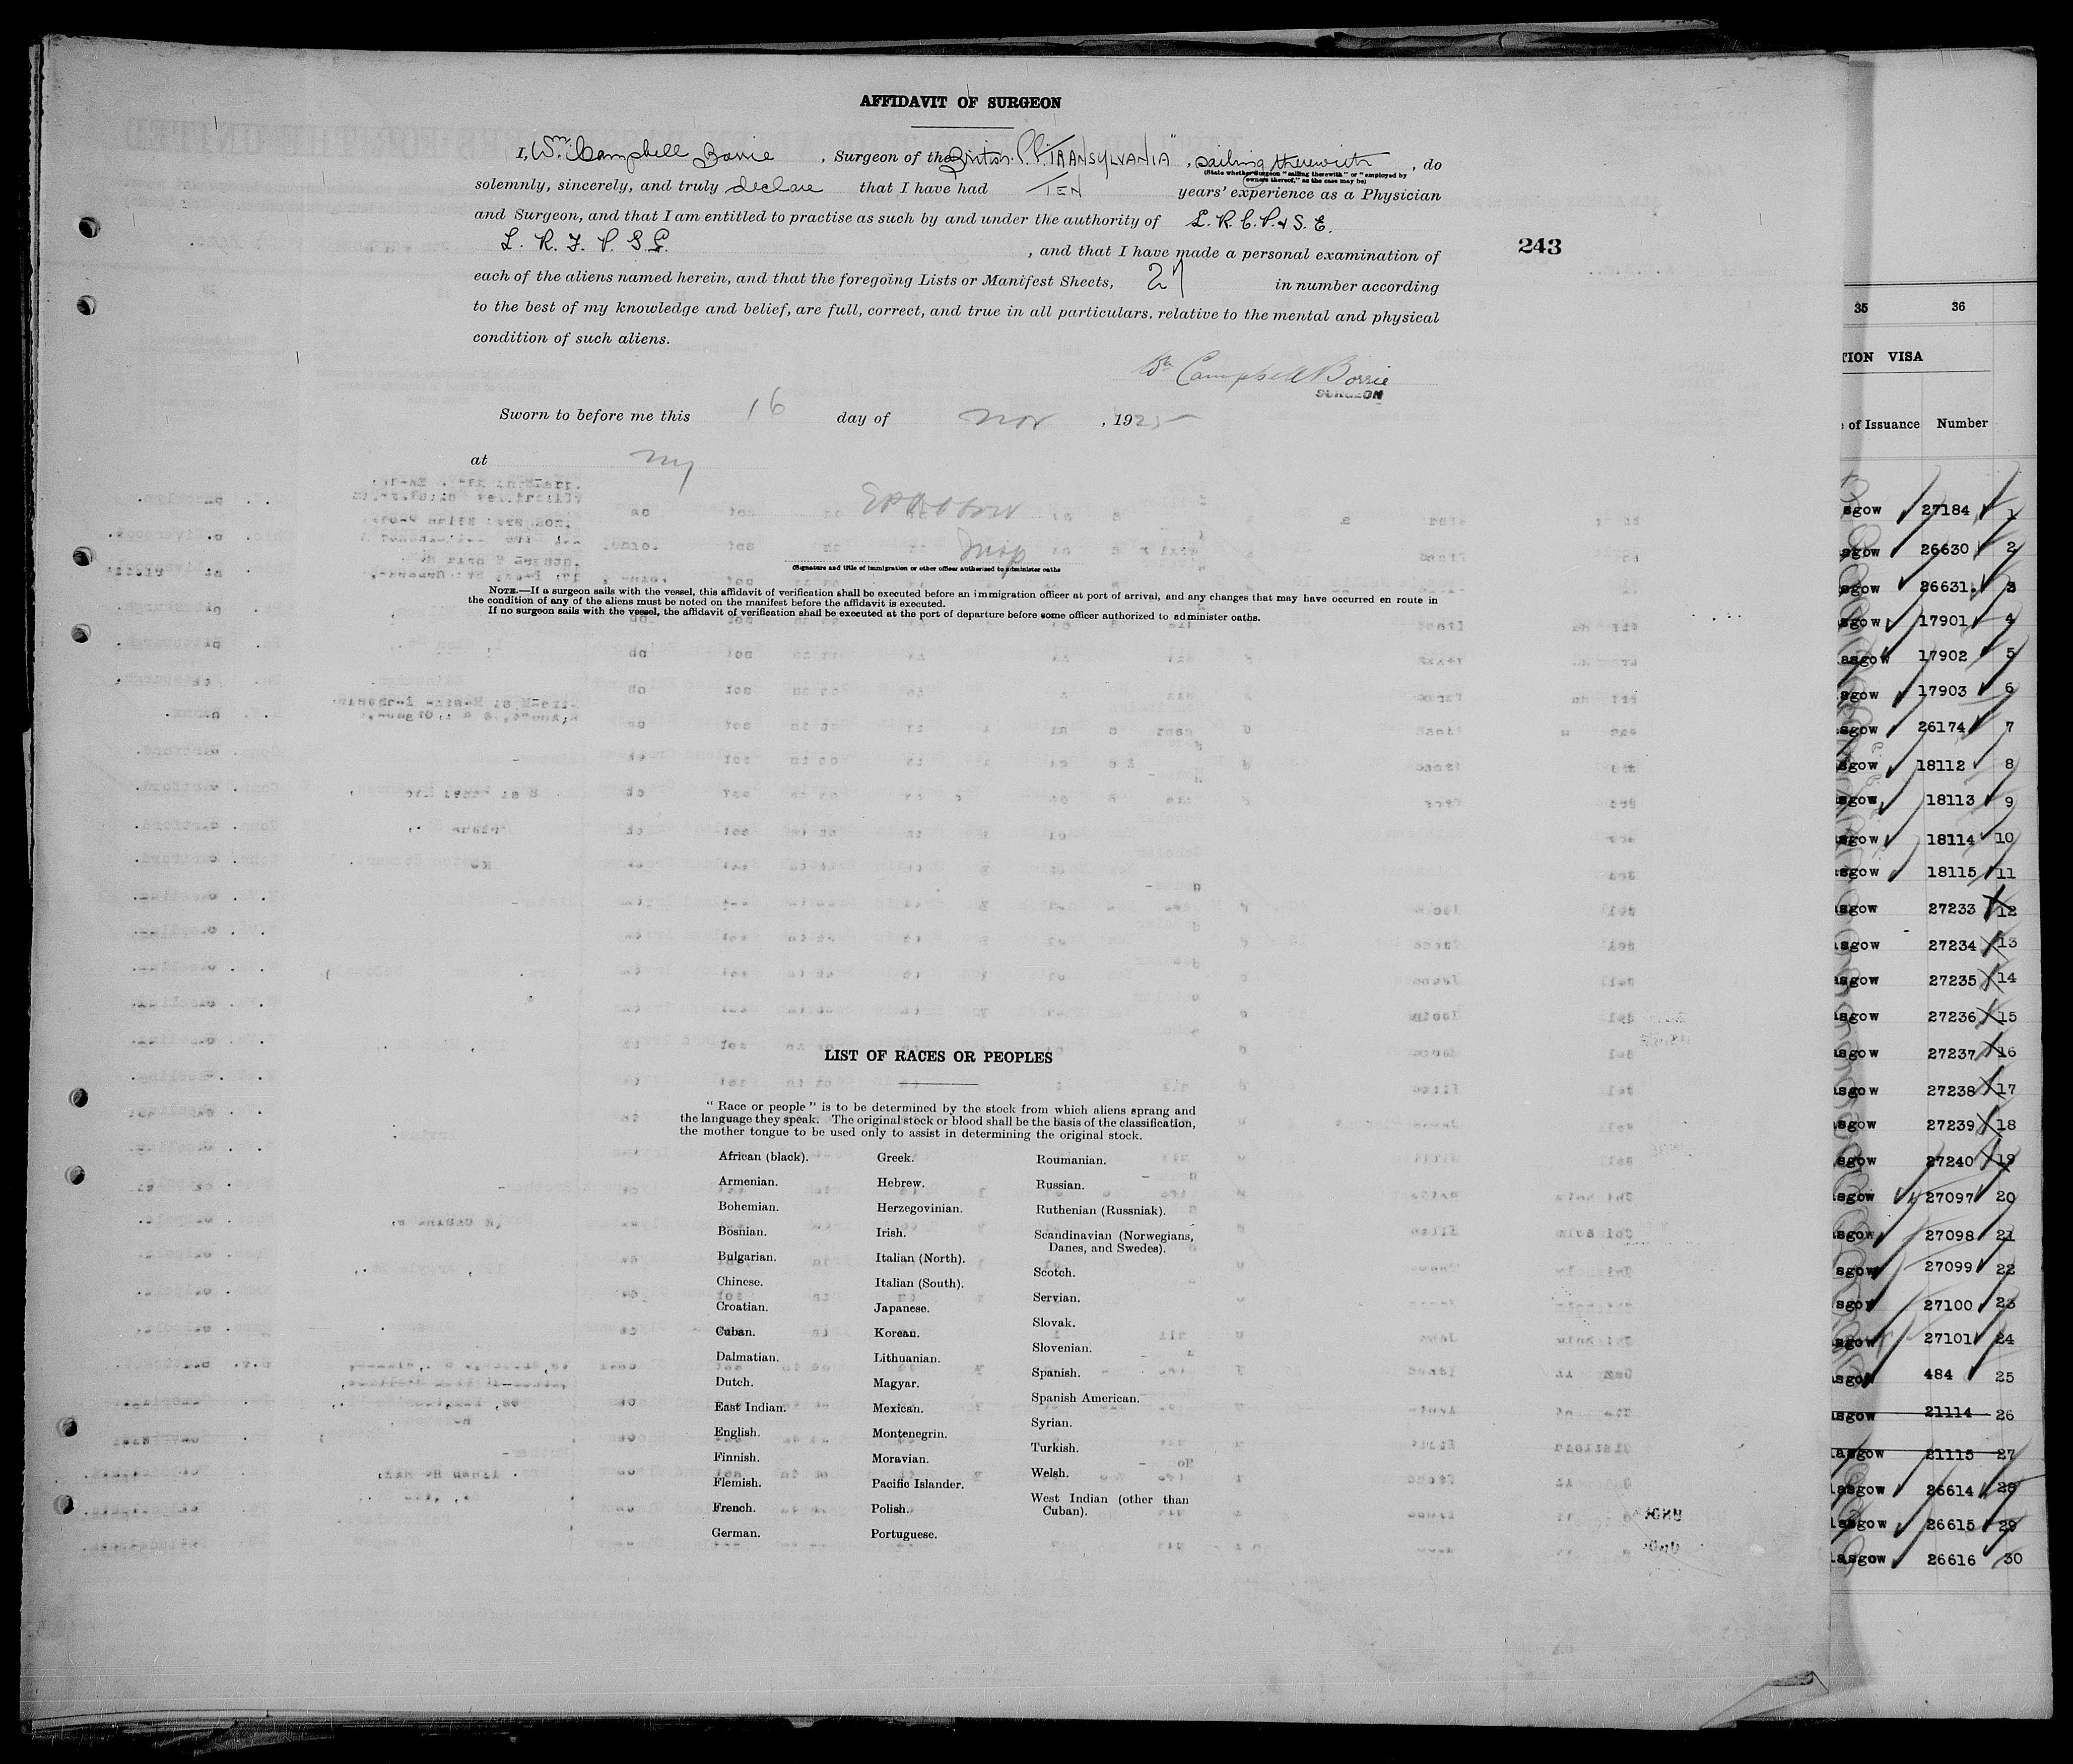 AFFIDAVIT OF SURGEON
I, Wm. Campbell Borrie , Surgeon of the British S.S. "TRANSYLVANIA" , sailing therewith , do
(State whether Surgeon "sailing therewith" or "employed by
owners thereof," as the case may be)
solemnly, sincerely, and truly declare that I have had TEN years' experience as a Physician
and Surgeon, and that I am entitled to practise as such by and under the authority of L. R. C. P. & S. E.
L. R. F. P. S. G. , and that I have made a personal examination of
243
each of the aliens named herein, and that the foregoing Lists or Manifest Sheets, 27 in number according
to the best of my knowledge and belief, are full, correct, and true in all particulars, relative to the mental and physical
condition of such aliens.
Wm Campbell Borrie
SURGEON
Sworn to before me this 16 day of Nov , 1925
at NY
Insp
(Signature and title of immigration or other officer authorized to administer oaths
NOTE.—If a surgeon sails with the vessel, this affidavit of verification shall be executed before an immigration officer at port of arrival, and any changes that may have occurred en route in
the condition of any of the aliens must be noted on the manifest before the affidavit is executed.
If no surgeon sails with the vessel, the affidavit of verification shall be executed at the port of departure before some officer authorized to administer oaths.
LIST OF RACES OR PEOPLES
"Race or people" is to be determined by the stock from which aliens sprang and
the language they speak. The original stock or blood shall be the basis of the classification,
the mother tongue to be used only to assist in determining the original stock.
African (black).
Armenian.
Bohemian.
Bosnian.
Bulgarian.
Chinese.
Croatian.
Cuban.
Dalmatian.
Dutch.
East Indian.
English.
Finnish.
Flemish.
French.
German.
Greek.
Hebrew.
Herzegovinian.
Irish.
Italian (North).
Italian (South).
Japanese.
Korean.
Lithuanian.
Magyar.
Mexican.
Montenegrin.
Moravian.
Pacific Islander.
Polish.
Portuguese.
Roumanian.
Russian.
Ruthenian (Russniak).
Scandinavian (Norwegians,
Danes, and Swedes).
Scotch.
Servian.
Slovak.
Slovenian.
Spanish.
Spanish American.
Syrian.
Turkish.
Welsh.
West Indian (other than
Cuban).
35 36
TION VISA
of Issuance Number
sgow 27184 1
sgow 26630 2
sgow 26631. 3
sgow 17901 4
asgow 17902 5
sgow 17903 6
sgow 26174 7
sgow 18112 8
sgow 18113 9
sgow 18114 10
sgow 18115 11
sgow 27233 12
sgow 27234 13
sgow 27235 14
sgow 27236 15
sgow 27237 16
sgow 27238 17
sgow 27239 18
sgow 27240 19
sgow 27097 20
sgow 27098 21
sgow 27099 22
sgow 27100 23
sgow 27101 24
sgow 484 25
asgow 21114 26
asgow 21115 27
asgow 26614 28
asgow 26615 29
asgow 26616 30